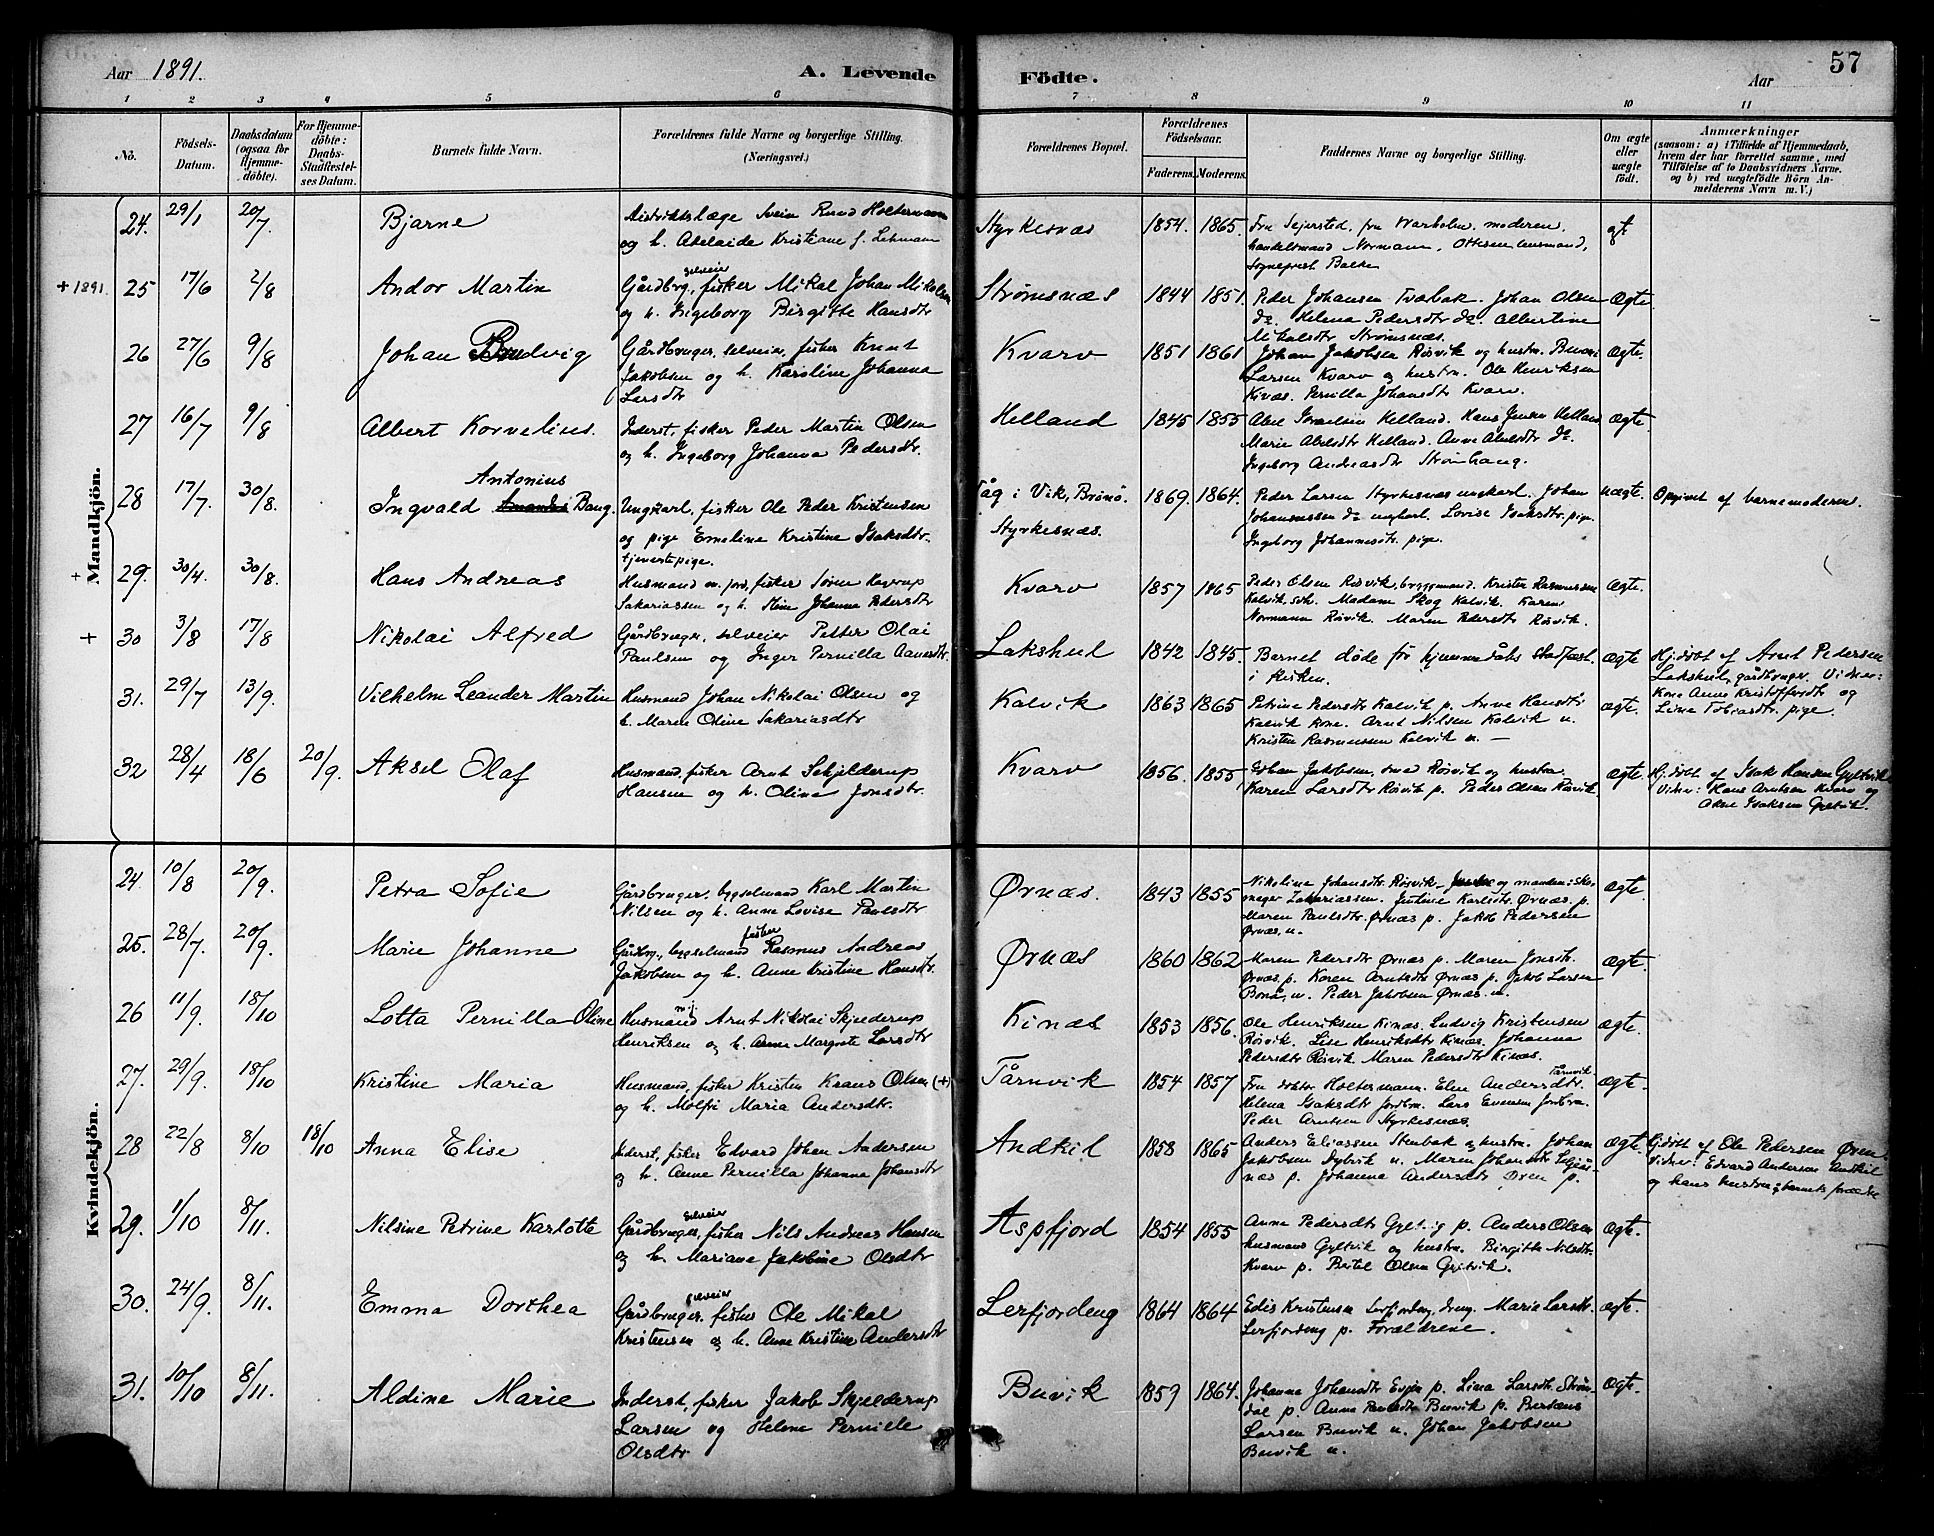 Aar 1891. A. Levende Födte. Aar 57
1 2 3 4 5 6 7 8 9 10 11
No. Födsels-Datum. Daabsdatum (ogsaa for Hjemme-döbte). For Hjemme-döbte: Daabs-Stadfæstel-ses Datum. Barnets fulde Navn. Forældrenes fulde Navne og borgerlige Stilling. (Næringsvei.) Forældrenes Bopæl. Forældrenes Födselsaar. Faderens. Moderens. Faddernes Navne og borgerlige Stilling. Om ægte eller uægte födt. Anmærkninger (saasom: a) i Tilfælde af Hjemmedaab, hvem der har forrettet samme, med Tilföielse af to Daabsvidners Navne. og b) ved uægtefödte Börn An-melderens Navn m. V.)
Mandkjön.
24. 29/1 20/7. Bjarne Distriktslæge Svein Rund Holtermann Styrkesnæs 1854. 1865. Fru Sejersted, fru Warholm, moderen, ægt.
og h. Adelaide Kristiane f. Lehmann handelsmand Normann, Ottesen lensmand,
Sogneprest Balke
+1891. 25 17/6 2/8 Andor Martin Gårdbrg, selveier fisker Mikal Johan Mikalsen Strømsnæs 1844 1851. Peder Johansen Tvæbak. Johan Olsen Ægte
og h. Ingeborg Birgitte Hansdtr do. Helena Pedersdtr do. Albertine
Mikalsdtr Strømsnæs.
26 27/6 9/8 Johan Ludvig Gårdbruger, selveier, fisker Knut Kvarv 1851 1861 Johan Jakobsen Røsvik og hustru. Ægte.
Jakobsen og h. Karoline Johanna Larsen Kvarv og hustru. Ole Henriksen
Larsdtr Kinæs. Pernilla Johansdtr Kvarv.
27 16/7 9/8 Albert Kornelius. Inderst, fisker Peder Martin Olsen Helland 1845 1855 Abel Helland. Hans Jensen Helland ægte.
og h. Ingeborg Johanna Pedersdtr. Marie Abelsdtr Helland. Anne Abelsdtr do.
Ingeborg Andreasdtr Strømhaug.
28 17/7. 30/8. Ingvald Antonius Bang. Ungkarl, fisker Ole Peder Kristensen Våg i Vik, Brønø. 1869. 1864. Peder Larsen Styrkesnæs ungkarl. Johan uægte. Opgivet af barnemoderen.
og pige Emeline Kristine Isaksdtr. Styrkesnæs. Johannessen do ungkarl. Lovise Isaksdtr. pige.
tjenestepige. Ingeborg Johannesdtr. pige.
+ 29. 30/4. 30/8. Hans Andreas Husmand m. jord, fisker Søren Hagerup Kvarv 1857 1865 Peder Olsen Røsvik, byggemand. Kristen Rasmussen Ægte.
Sakariassen og h. Stine Johanna Pedersdtr Kalvik, Madam Skog Kalvik. Karen
Normann Røsvik. Maren Pedersdtr Røsvik.
+ 30 3/8 17/8 Nikolai Alfred Gårdbruger, selveier Petter Olai Lakshul 1842 1845. Barnet døde før hjemmedåbs Stadfæst. ægte Hj.døbt af Arnt Pedersen
Paulsen og Inger Pernilla Aanesdtr. i kirken. Lakshul, gårdbruger. Vidner:
31. 29/7 13/9. Vilhelm Leander Martin Husmand Johan Nikolai Olsen og Kalvik 1863 1865 Petrine Pedersdtr Kalvik p. Anne Hansdtr ægte. Kone Anne Kristoffersdtr og
h. Maren Oline Sakariasdtr Kalvik kone. Arnt Nilsen Kalvik u. Lina Tobiasdtr. pige.
Kristen Rasmussen Kalvik u. —
32 28/4 18/6 20/9. Aksel Olaf Husmand, fisker Arnt Schjelderup Kvarv 1856. 1855 Johan Jakobsen, smed Røsvik og hustru. ægte. Hj.døbt af Isak Hansen Gyltvik
Hansen og h. Oline Jonsdtr. Karen Larsdtr Røsvik p. Peder Olsen Røsvik. Vidner: Hans Arntsen Kvarv og
Isaksen Gyltvik.
Kvindekjön.
24. 10/8 20/9. Petra Sofie Gårdbruger, bygselmand Karl Martin Ørnæs. 1843 1855 Nikoline Johansdtr. Røsvik og manden: Sko- Ægte
Nilsen og h. Anne Lovise Paulsdtr mager Zakariassen. Justine Karlsdtr. Ørnæs p.
Maren Paulsdtr. Ørnæs p. Jakob Pedersen
Ørnæs. u.
25. 28/7. 20/9. Marie Johanne Gårdbrg., bygselmand fisker Rasmus Andreas Ørnæs 1860 1862 Maren Pedersdtr Ørnæs p. Maren Jonsdtr. Ægte.
Jakobsen og h. Anne Kristine Hansdtr. Ørnæs p. Karen Arntsdtr Ørnæs p. Jakob Larsen
Bonå, u. Peder Jakobsen Ørnæs. u.
26 11/9. 18/10 Lotta Pernilla Oline Husmand Arnt Nikolai Skjelderup Kinæs 1853 1856. Ole Henriksen Kinæs. Ludvig Kristensen Ægte.
Henriksen og h. Anne Margrete Larsdtr Røsvik. Lise Henriksdtr Kinæs. Johanna
Pedersdtr Røsvik. Maren Pedersdtr Kinæs.
27. 29/9. 18/10 Kristine Maria Husmand, fisker Kristen Kraus Olsen (+) Tårnvik 1854 1857 Fru doktor Holtermann. Elen Andersdtr. Tårnvik Ægte.
og h. Molfri Maria Andersdtr. Helena Isaksdtr Jordbru. Lars Evensen Jordbru.
Peder Arntsen Styrkesnæs.
28 22/8 8/10 18/10 Anna Elise Inderst, fisker Edvard Johan Andersen Andkil 1858 1865 Anders Eliassen Stenbak og hustru. Johan ægte. Hj.døbt af Ole Pedersen
og h. Anne Pernilla Johanna Johansdtr Jakobsen Dybvik u. Maren Johansdtr Vidner: Edvard Andersen Andkil
næs p. Johanna Andersdtr p. og hans hustru, barnets forældre
29. 1/10 8/11. Nilsine Petrine Karlotte Gårdbruger, selveier fisker Nils Andreas Hansen Aspfjord 1854 1855 Anna Pedersdtr Gyltvig p. Anders Olsen ægte.
og h. Mariane Jakobine Olsdtr husmand Gyltvik og hustru. Birgitte Nilsdtr.
Kvarv p. Bertel Olsen Gyltvik.
30. 24/9. 8/11. Emma Dorthea Gårdbruger, selveier fisker Ole Mikal Lerfjordeng 1864 1864 Edis Kristensen Lerfjordeng, dreng. Marie Larsdtr. ægte.
Kristensen og h. Anne Kristine Andersdtr Lerfjordeng p. Forældrene.
31. 10/10 8/11. Aldine Marie Inderst, fisker Jakob Skjelderup Buvik 1859 1864. Johanna Johansdtr Evjen p. Lina Larsdtr. Strøm- Ægte.
Larsen og Helene Pernille dal p. Anna Paulsdtr Buvik p. Berdines
Olsdtr Larsen Buvik u. Johan Jakobsen
Buvik u.